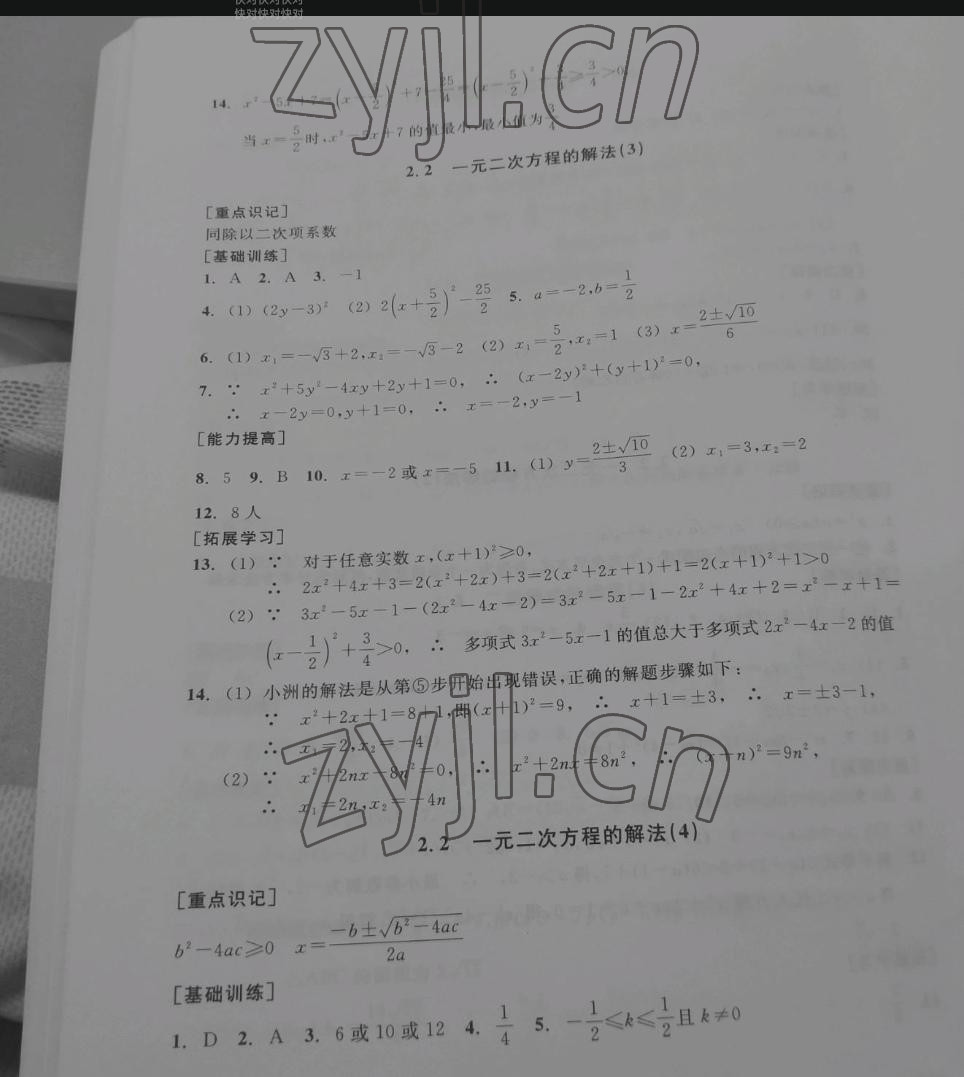 快对快对快对
快对快对快对
zyjl.cn
14. x²-5x+7=(x-5/2)²+7-25/4=(x-5/2)²+3/4≥3/4>0,
当x=5/2时,x²-5x+7的值最小,最小值为3/4
2.2 一元二次方程的解法(3)
[重点识记]
同除以二次项系数
[基础训练]
1. A 2. A 3. -1
4. (1) (2y-3)² (2) 2(x+5/2)²-25/2 5. a=-2,b=1/2
6. (1) x₁=-√3+2,x₂=-√3-2 (2) x₁=5/2,x₂=1 (3) x=(2±√10)/6
7. ∵ x²+5y²-4xy+2y+1=0, ∴ (x-2y)²+(y+1)²=0,
∴ x-2y=0,y+1=0, ∴ x=-2,y=-1
[能力提高]
8. 5 9. B 10. x=-2或x=-5 11. (1) y=(2±√10)/3 (2) x₁=3,x₂=2
12. 8人
[拓展学习]
13. (1) ∵ 对于任意实数x,(x+1)²≥0,
∴ 2x²+4x+3=2(x²+2x)+3=2(x²+2x+1)+1=2(x+1)²+1>0
(2) ∵ 3x²-5x-1-(2x²-4x-2)=3x²-5x-1-2x²+4x+2=x²-x+1=
(x-1/2)²+3/4>0, ∴ 多项式3x²-5x-1的值总大于多项式2x²-4x-2的值
14. (1) 小洲的解法是从第⑤步开始出现错误,正确的解题步骤如下:
∵ x²+2x+1=8+1,即(x+1)²=9, ∴ x+1=±3, ∴ x=±3-1,
∴ x₁=2,x₂=-4
(2) ∵ x²+2nx-8n²=0, ∴ x²+2nx=8n², ∴ (x+n)²=9n²,
∴ x₁=2n,x₂=-4n
zyjl.cn
2.2 一元二次方程的解法(4)
[重点识记]
b²-4ac≥0 x=(-b±√(b²-4ac))/2a
[基础训练]
1. D 2. A 3. 6或10或12 4. 1/4 5. -1/2≤k≤1/2且k≠0